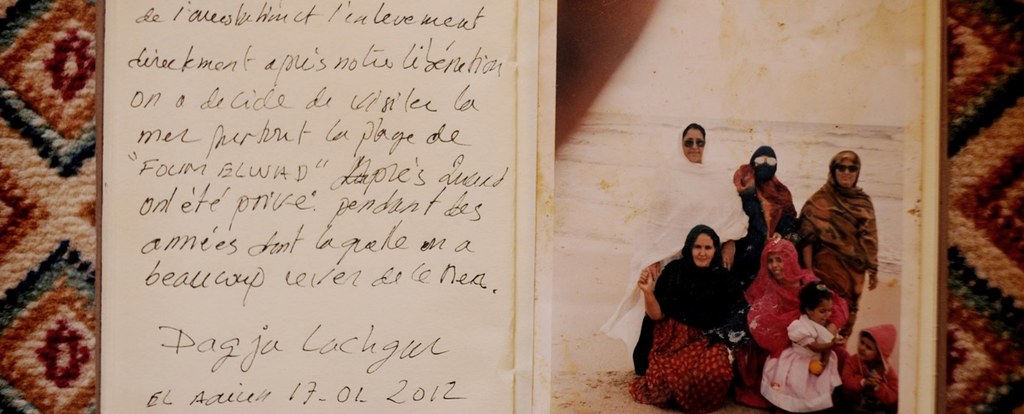 de l'arrestation et l'enlèvement
directement après notre libération
on a decidé de visiter la
mer surtout la plage de
"FOUM ELWAD" après
ont été privé. pendant des
années dont laquelle on a
beaucoup rever de le Mer.
Dagja Lachgar
EL Aaiun 17-01 2012